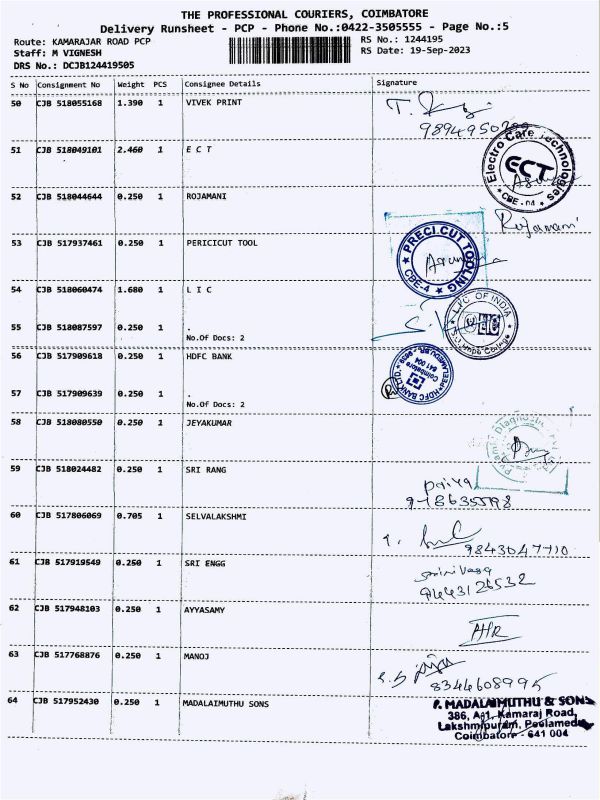 THE PROFESSIONAL COURIERS, COIMBATORE
Delivery Runsheet - PCP - Phone No.:0422-3505555 - Page No.:5
Route: KAMARAJAR ROAD PCP
RS No.: 1244195
Staff: M VIGNESH
RS Date: 19-Sep-2023
DRS No.: DCJB124419505
S No Consignment No Weight PCS Consignee Details Signature
50 CJB 518055168 1.390 1 VIVEK PRINT
51 CJB 518049101 2.460 1 E C T
Electro Care Technologies
ECT
CBE - 04
52 CJB 518044644 0.250 1 ROJAMANI
Rojamani
53 CJB 517937461 0.250 1 PERICICUT TOOL
PRECI.CUT TOOLING
CBE-4
54 CJB 518060474 1.680 1 L I C
L.I.C. OF INDIA
LIC
55 CJB 518087597 0.250 1 .
No.Of Docs: 2
56 CJB 517909618 0.250 1 HDFC BANK
HDFC BANK LTD.
Coimbatore
641 004
57 CJB 517909639 0.250 1 .
No.Of Docs: 2
58 CJB 518080550 0.250 1 JEYAKUMAR
59 CJB 518024482 0.250 1 SRI RANG
60 CJB 517806069 0.705 1 SELVALAKSHMI
61 CJB 517919549 0.250 1 SRI ENGG
9443126532
62 CJB 517948103 0.250 1 AYYASAMY
63 CJB 517768876 0.250 1 MANOJ
8344608995
64 CJB 517952430 0.250 1 MADALAIMUTHU SONS
P. MADALAIMUTHU & SONS
386, A-1, Kamaraj Road,
Lakshmipuram, Peelamedu
Coimbatore - 641 004